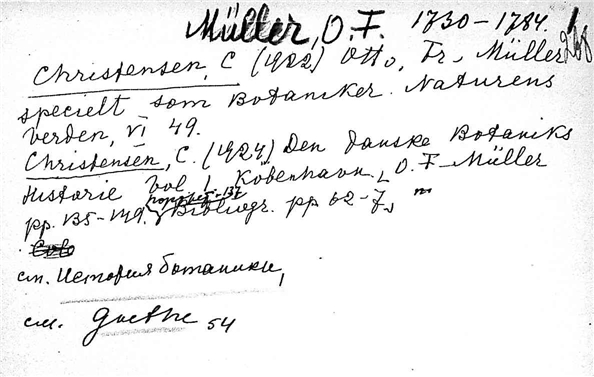 Müller, O. F. 1730–1784.
Christensen, C (1922) Otto, Fr. Müller
specielt som Botaniker. Naturens
Verden, VI 49.
Christensen, C. (1924) Den danske Botaniks
Historie Vol. 1, København. O. F. Müller
pp. 135-149. Bibliogr. pp 62-7,
см. История ботаники,
см. Goethe 54